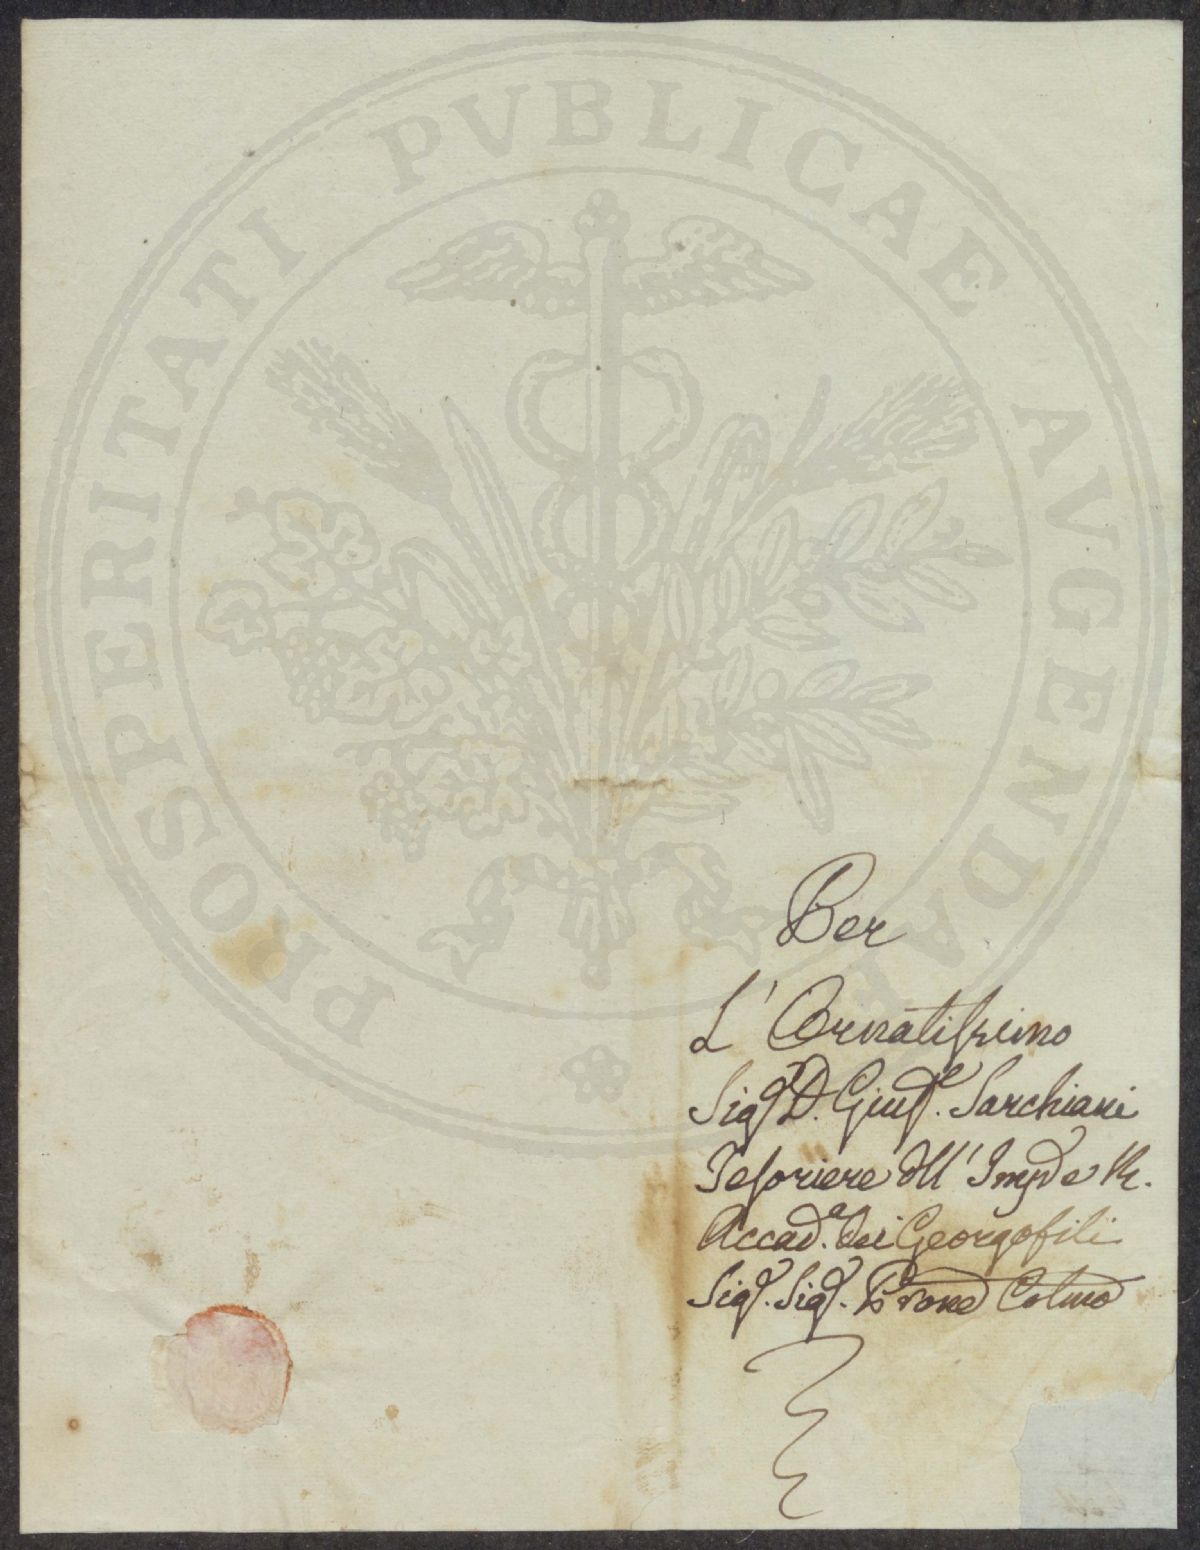 PROSPERITATI PVBLICAE AVGENDAE
Per
L' Ornatissimo
Sigr. D. Giuse. Sarchiani
Tesoriere dell' Imp. e R.
Accada. dei Georgofili
Sigr. Sigr. Prone Colmo